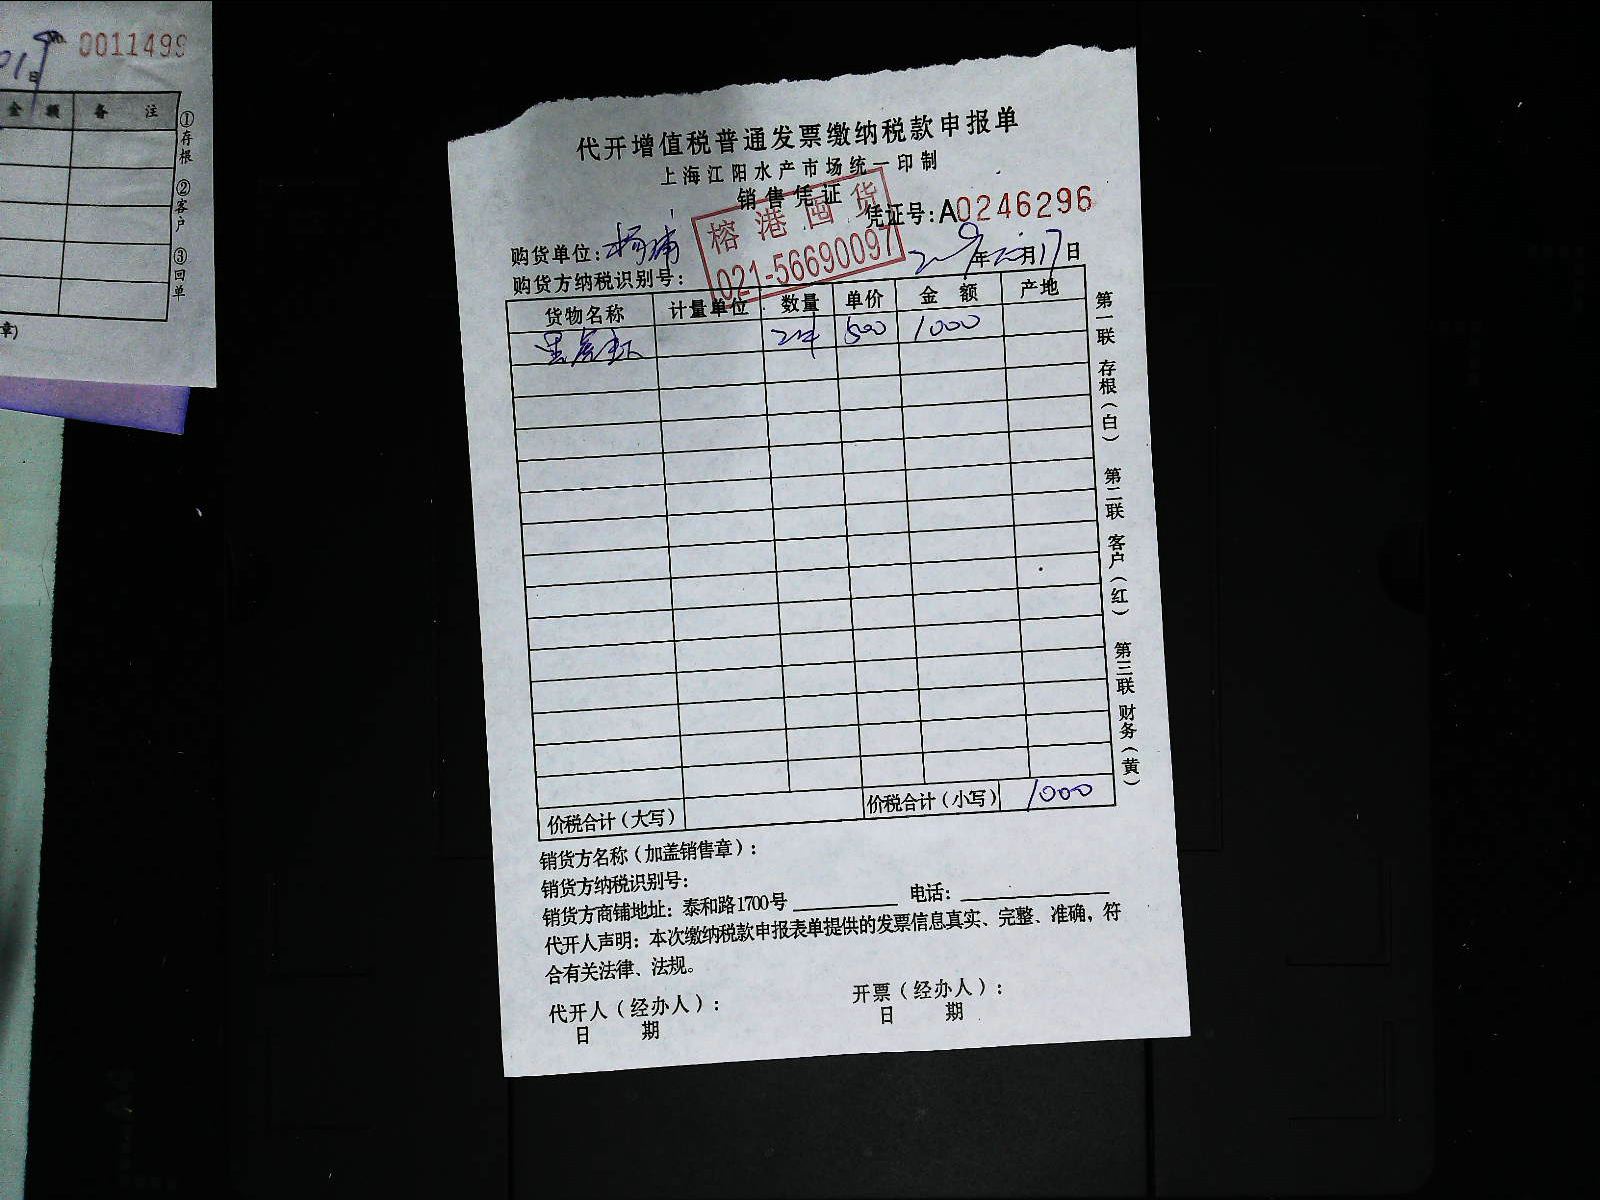 0011499
金 额 备 注
①存根 ②客户 ③回单
章)
代开增值税普通发票缴纳税款申报单
上海江阳水产市场统一印制
销售凭证
凭证号:A0246296
榕港囤货
021-56690097
购货单位:杨浦
年 月17日
购货方纳税识别号:
货物名称 计量单位 数量 单价 金 额 产地
黑虎虾 2件 500 1000
价税合计(大写) 价税合计(小写) 1000
第一联 存根(白) 第二联 客户(红) 第三联 财务(黄)
销货方名称(加盖销售章):
销货方纳税识别号:
销货方商铺地址: 泰和路1700号 电话:
代开人声明: 本次缴纳税款申报表单提供的发票信息真实、完整、准确,符
合有关法律、法规。
代开人(经办人): 开票(经办人):
日 期 日 期